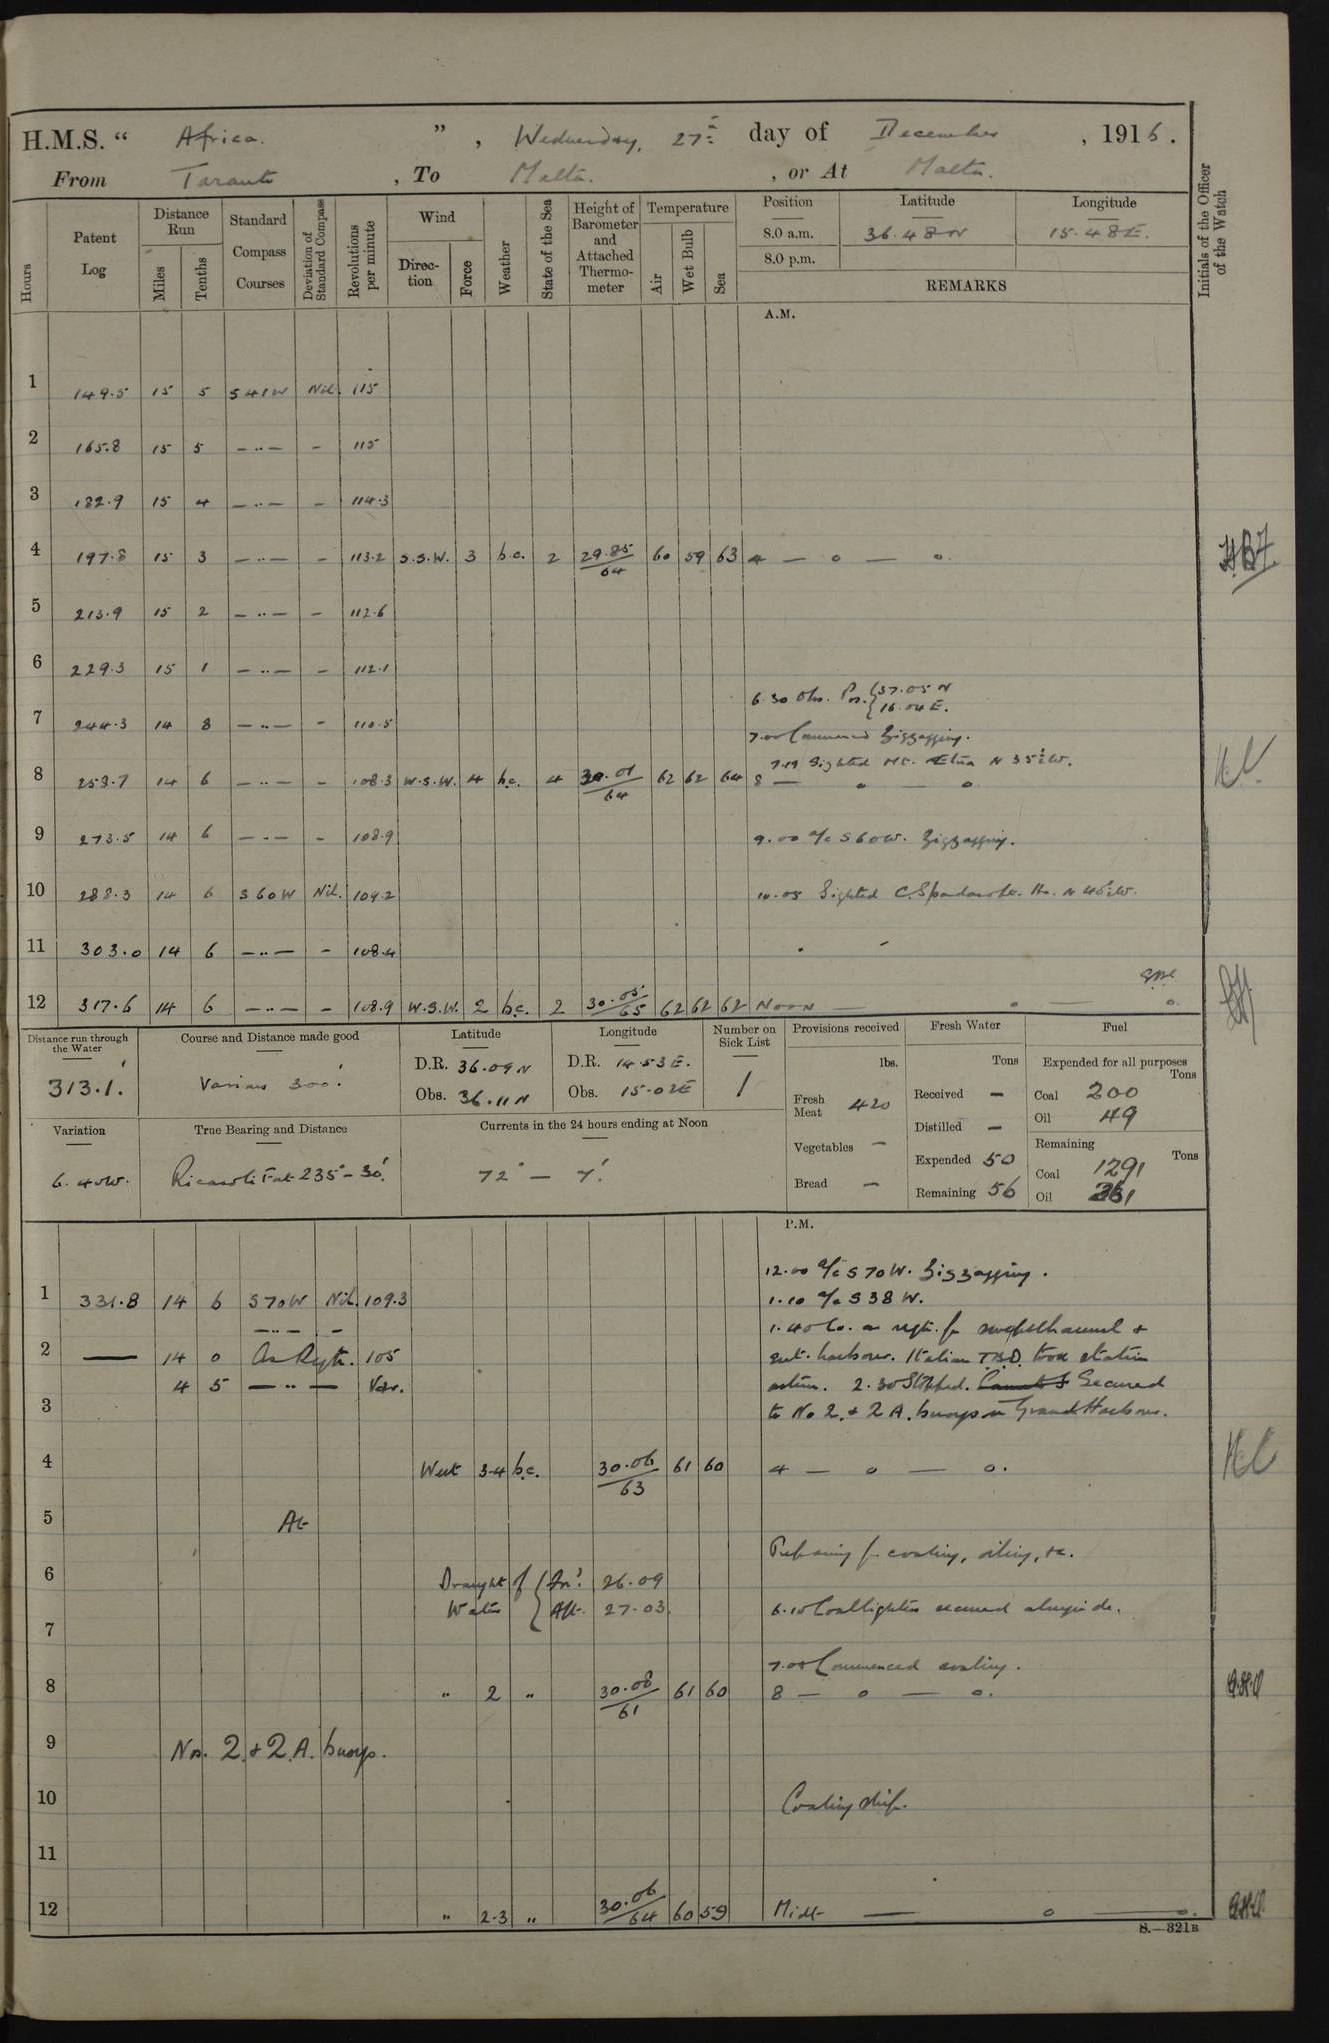 H.M.S. “ Africa. ” , Wednesday, 27th day of December , 1916.
From Taranto , To Malta. , or At Malta.
Hours
Patent Log
Distance Run
Miles
Tenths
Standard Compass Courses
Deviation of Standard Compass
Revolutions per minute
Wind
Direction
Force
Weather
State of the Sea
Height of Barometer and Attached Thermometer
Temperature
Air
Wet Bulb
Sea
Position Latitude Longitude
8.0 a.m. 36.48 N 15.48 E.
8.0 p.m.
REMARKS
Initials of the Officer of the Watch
A.M.
1 149.5 15 5 S 41 W Nil. 115
2 165.8 15 5 — ·· — - 115
3 182.9 15 4 — ·· — - 114.3
4 197.8 15 3 — ·· — - 113.2 S.S.W. 3 b.c. 2 29.85/64 60 59 63 4 — o — o.
5 213.9 15 2 — ·· — - 112.6
6 229.3 15 1 — ·· — - 112.1
6.30 Obs. Pos. { 37.05 N
16.04 E.
7 244.3 14 8 — ·· — - 110.5
7.00 Commenced Zigzagging.
7.19 Sighted Mt. Etna N 35½ W.
8 14 6 — ·· — - 108.3 W.S.W. 4 b.c. 4 30.01/64 62 62 64 8 — o — o
9 273.5 14 6 — ·· — - 108.9 9.00 a/c S 60 W. Zigzagging.
10 288.3 14 6 S 60 W Nil. 109.2 10.05 Sighted C. Lt. Ho. N W.
11 303.0 14 6 — ·· — - 108.4
12 317.6 14 6 — ·· — - 108.9 W.S.W. 2 b.c. 2 30.05/65 62 62 62 Noon — o — o.
Distance run through the Water
313.1.
Course and Distance made good
Various 300'.
Latitude
D.R. 36.09 N
Obs. 36.11 N
Longitude
D.R. 14.53 E.
Obs. 15.02 E
Number on Sick List
1
Provisions received
lbs.
Fresh Meat 420
Vegetables —
Bread —
Fresh Water
Tons
Received —
Distilled —
Expended 50
Remaining 56
Fuel
Expended for all purposes
Tons
Coal 200
Oil 49
Remaining
Tons
Coal 1291
Oil
Variation
6.40 W.
True Bearing and Distance
Ricasoli Fat 235° — 30'.
Currents in the 24 hours ending at Noon
72° — 7'.
P.M.
12.00 a/c S 70 W. Zigzagging.
1 331.8 14 6 S 70 W Nil. 109.3 1.10 a/c S 38 W.
— ·· — -
1.40 Co. as reqte. for swept channel &
2 — 14 0 As Reqte. 105 ent. harbour. Italian T.B.D. took station
4 5 — ·· — Var. astern. 2.30 Stopped. Secured
3 to No 2. & 2 A. buoys in Grand Harbour.
4 West 3-4 b.c. 30.06/63 61 60 4 — o — o.
5 At
Preparing for coaling, oiling, &c.
6 Draught of Water { For'd. 26.09
Aft. 27.03.
6.10 Coal lighters secured alongside.
7
7.00 Commenced coaling.
8 " 2 " 30.08/61 61 60 8 — o — o.
9 Nos. 2. & 2. A. buoys.
10 Coaling ship.
11
12 " 2-3 " 30.06/64 60 59 Midt — o — o.
S.—321B